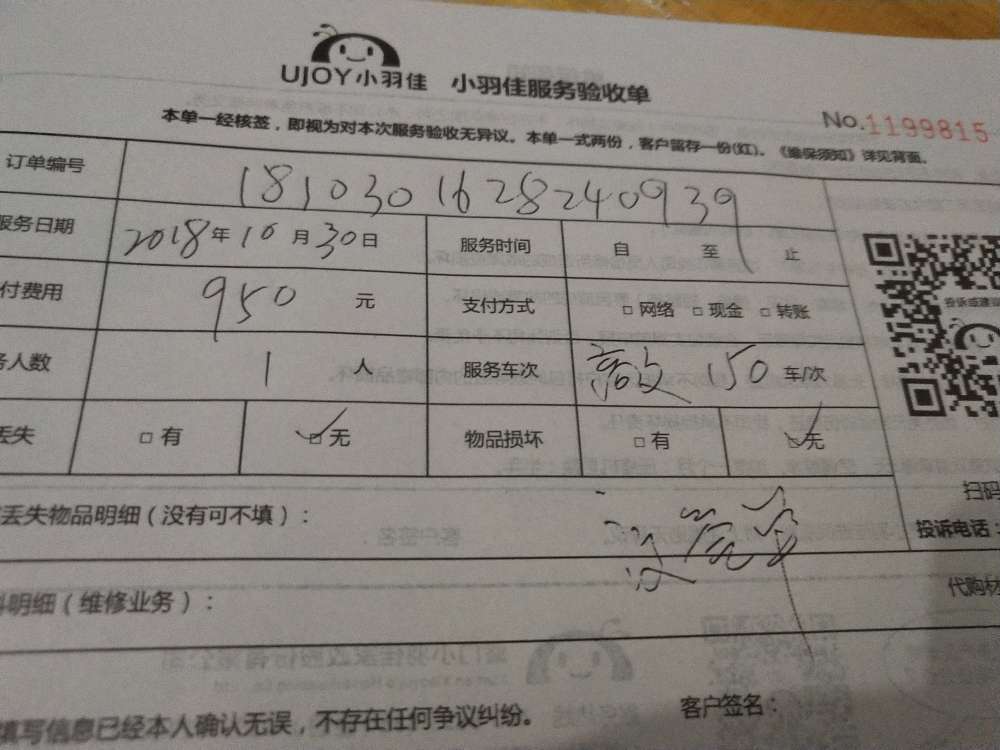 UJOY小羽佳 小羽佳服务验收单
No.1199815
本单一经核签，即视为对本次服务验收无异议。本单一式两份，客户留存一份(红)。《维保须知》详见背面。
订单编号 1810301628240939
服务日期 2018年10月30日 服务时间 自 至 止
付费用 950 元 支付方式 □网络 □现金 □转账
务人数 1 人 服务车次 150 车/次
丢失 □有 ☑无 物品损坏 □有 ☑无
投诉或建议
扫码
丢失物品明细（没有可不填）：
投诉电话：
料明细（维修业务）：
代购材
填写信息已经本人确认无误，不存在任何争议纠纷。
客户签名：